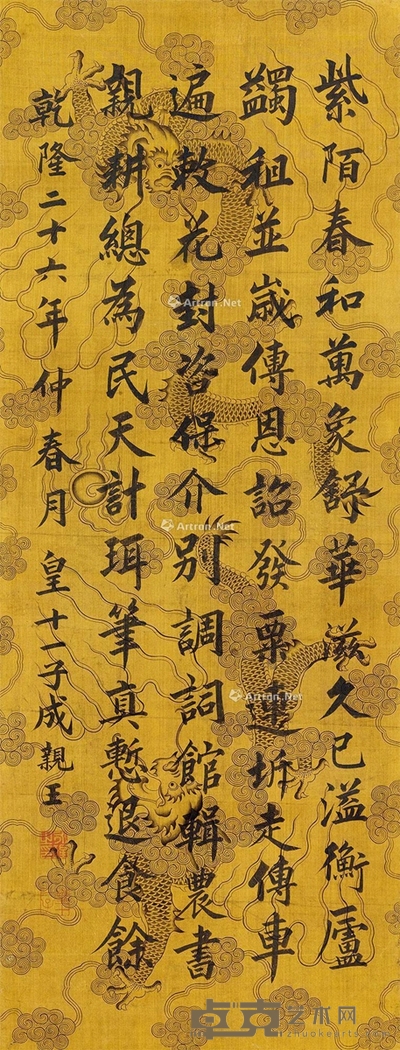 紫陌春和萬象舒華滋久已溢衡廬
蠲租並歲傳恩詔發粟連圻走傳車
遍敕花封咨保介別調詞館輯農書
親耕總為民天計珥筆真慙退食餘
乾隆二十六年仲春月 皇十一子成親王
Artron.Net
Artron.Net
Artron.Net
点克艺术网